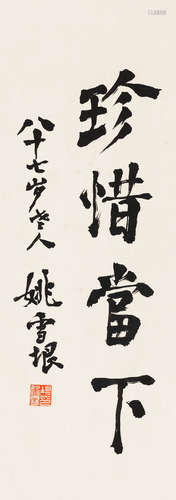 珍惜當下
八十七岁老人
姚雪垠